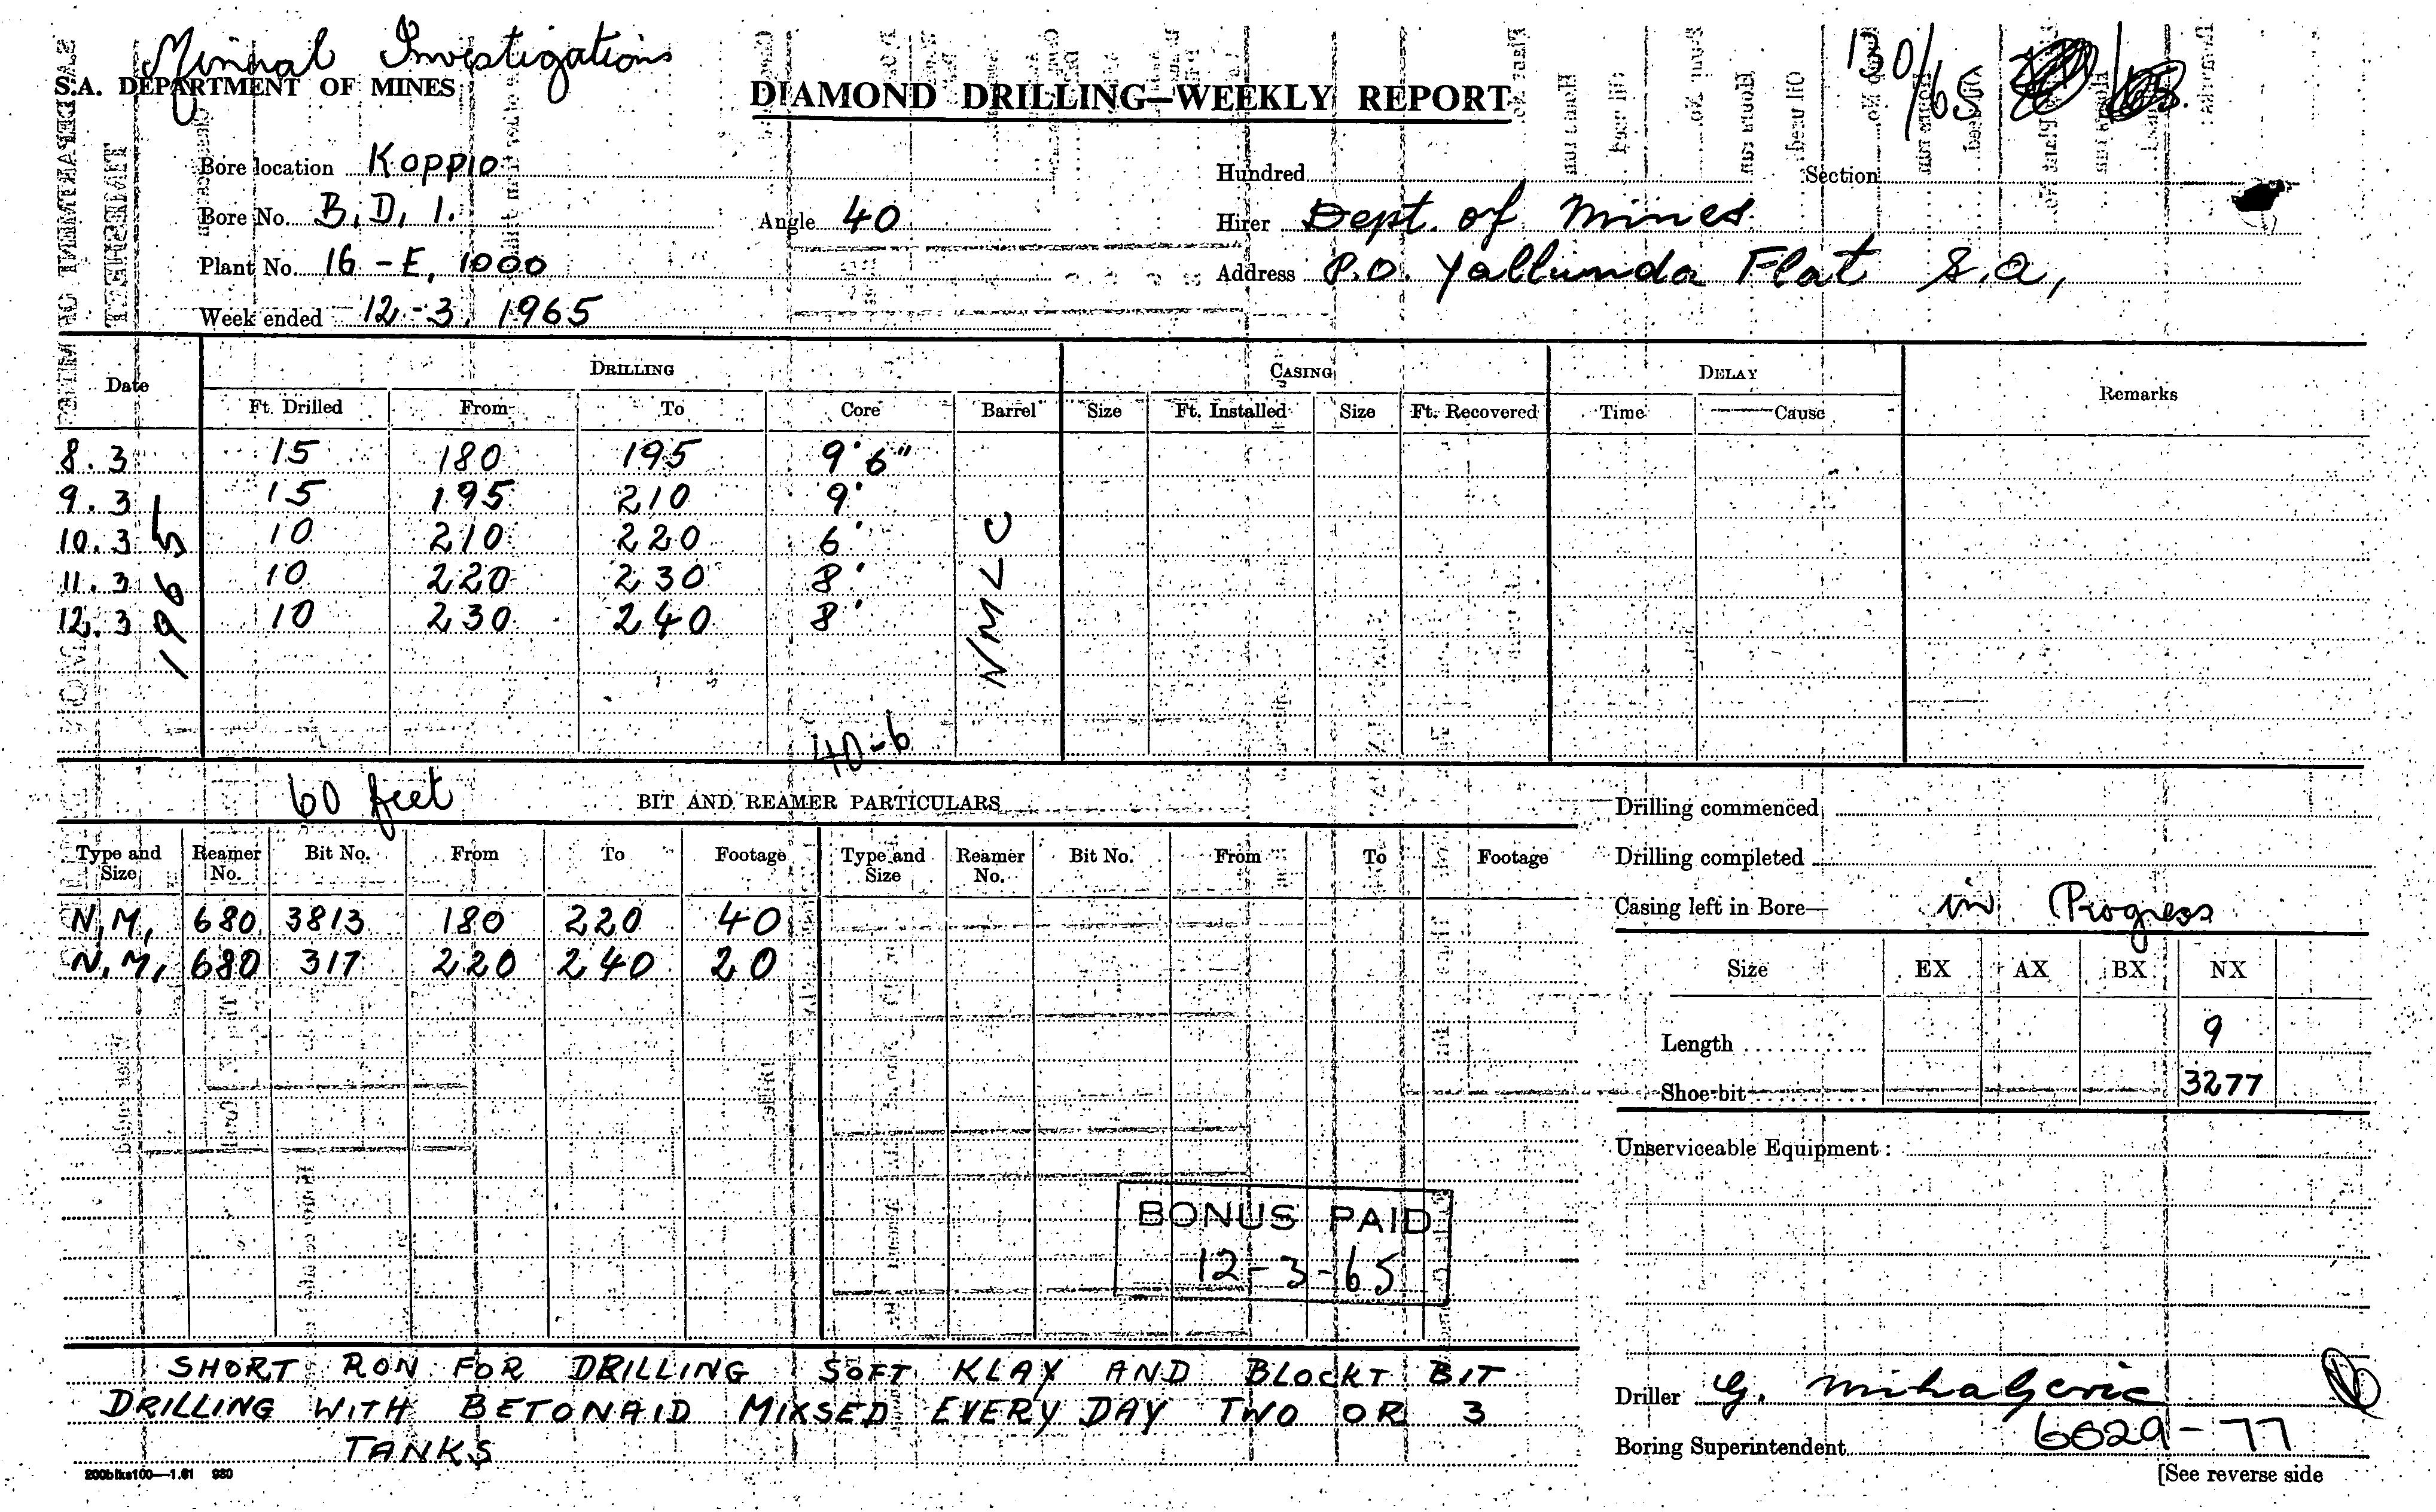 Mineral Investigations
S.A. DEPARTMENT OF MINES
DIAMOND DRILLING—WEEKLY REPORT
130/65
Bore location Koppio
Hundred
Section
Bore No. B.D. 1.
Angle 40
Hirer Dept. of Mines
Plant No. 16 - E, 1000
Address P.O. Yallunda Flat S.A,
Week ended 12 - 3, 1965
Date
DRILLING
CASING
DELAY
Remarks
Ft. Drilled From To Core Barrel Size Ft. Installed Size Ft. Recovered Time Cause
8.3 15 180 195 9' 6"
9.3 15 195 210 9'
10.3 10 210 220 6'
11.3 10 220 230 8'
12.3 10 230 240 8'
1965
NMLC
40-6
60 feet
BIT AND REAMER PARTICULARS
Type and Size Reamer No. Bit No. From To Footage Type and Size Reamer No. Bit No. From To Footage
N,M, 680 3813 180 220 40
N,M, 680 317 220 240 20
Drilling commenced
Drilling completed
Casing left in Bore— in Progress
Size EX AX BX NX
Length 9
Shoe-bit 3277
Unserviceable Equipment :
BONUS PAID
12-3-65
SHORT RON FOR DRILLING SOFT KLAY AND BLOCKT BIT
DRILLING WITH BETONAID MIXSED EVERY DAY TWO OR 3
TANKS
Driller G. Mihaljevic
Boring Superintendent
6029-77
200blks100—1.61 980
[See reverse side